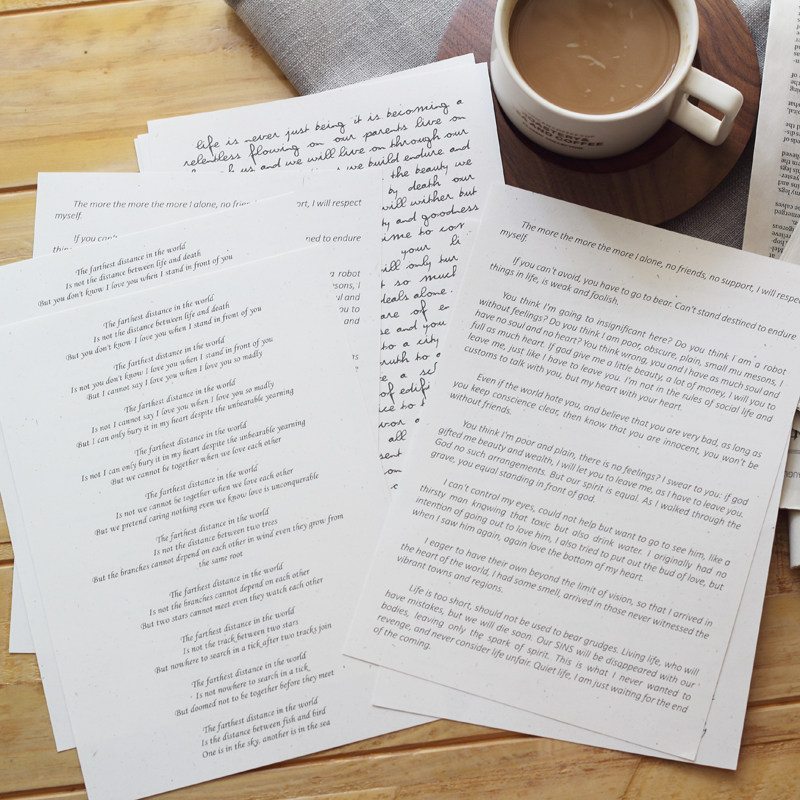 life is never just being it is becoming a
relentless flowing on our parents live on
us and we will live on through our
we build endure and
the beauty we
by death our
will wither but
ty and goodness
time to con
your li
ill only hur
t so much
deals alone.
are of e
se and you
to a city
ruth to a
e a sel
of edifi
ice to
all
sent
on
The more the more the more I alone, no frien
ort, I will respect
myself.
If you can't
ned to endure
thin
a robot
sons, I
ul and
ou to
and
The farthest distance in the world
Is not the distance between life and death
But you don't know I love you when I stand in front of you
The farthest distance in the world
Is not the distance between life and death
But you don't know I love you when I stand in front of you
The farthest distance in the world
Is not you don't know I love you when I stand in front of you
But I cannot say I love you when I love you so madly
The farthest distance in the world
Is not I cannot say I love you when I love you so madly
But I can only bury it in my heart despite the unbearable yearning
The farthest distance in the world
Is not I can only bury it in my heart despite the unbearable yearning
But we cannot be together when we love each other
The farthest distance in the world
Is not we cannot be together when we love each other
But we pretend caring nothing even we know love is unconquerable
The farthest distance in the world
Is not the distance between two trees
But the branches cannot depend on each other in wind even they grow from
the same root
The farthest distance in the world
Is not the branches cannot depend on each other
But two stars cannot meet even they watch each other
The farthest distance in the world
Is not the track between two stars
But nowhere to search in a tick after two tracks join
The farthest distance in the world
Is not nowhere to search in a tick
But doomed not to be together before they meet
The farthest distance in the world
Is the distance between fish and bird
One is in the sky, another is in the sea
The more the more the more I alone, no friends, no support, I will respect
myself.
If you can't avoid, you have to go to bear. Can't stand destined to endure
things in life, is weak and foolish.
You think I'm going to insignificant here? Do you think I am a robot
without feelings? Do you think I am poor, obscure, plain, small mu mesons, I
have no soul and no heart? You think wrong, you and I have as much soul and
full as much heart. If god give me a little beauty, a lot of money, I will you to
leave me, just like I have to leave you. I'm not in the rules of social life and
customs to talk with you, but my heart with your heart.
Even if the world hate you, and believe that you are very bad, as long as
you keep conscience clear, then know that you are innocent, you won't be
without friends.
You think I'm poor and plain, there is no feelings? I swear to you: if god
gifted me beauty and wealth, I will let you to leave me, as I have to leave you.
God no such arrangements. But our spirit is equal. As I walked through the
grave, you equal standing in front of god.
I can't control my eyes, could not help but want to go to see him, like a
thirsty man knowing that toxic but also drink water. I originally had no
intention of going out to love him, I also tried to put out the bud of love, but
when I saw him again, again love the bottom of my heart.
I eager to have their own beyond the limit of vision, so that I arrived in
the heart of the world, I had some smell, arrived in those never witnessed the
vibrant towns and regions.
Life is too short, should not be used to bear grudges. Living life, who will
have mistakes, but we will die soon. Our SINS will be disappeared with our
bodies, leaving only the spark of spirit. This is what I never wanted to
revenge, and never consider life unfair. Quiet life, I am just waiting for the end
of the coming.